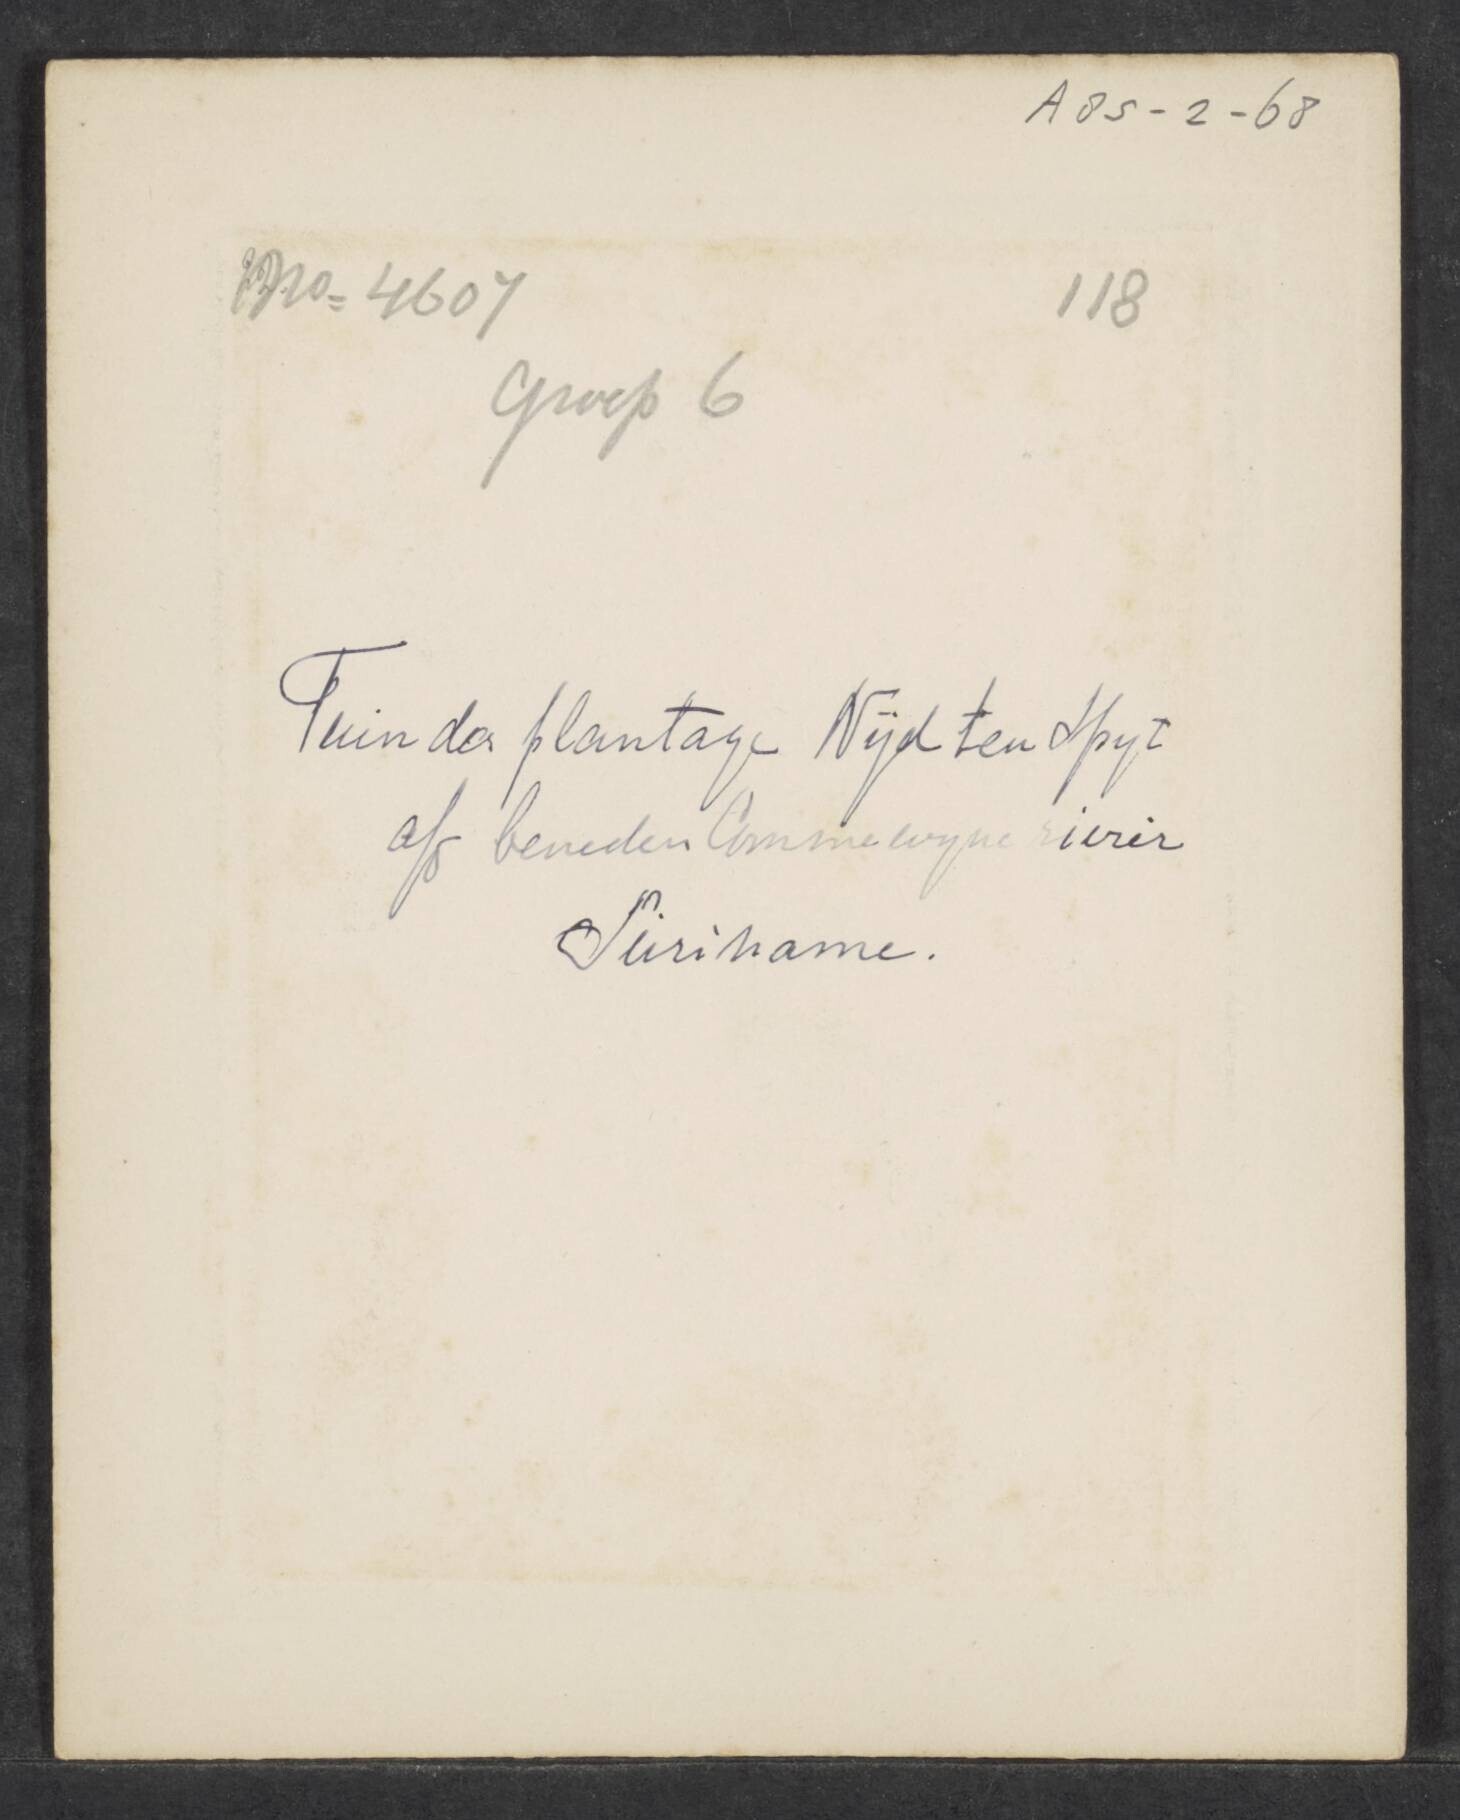 A85-2-68
No= 4607 118
Groep 6
Tuin der plantage Nijd ten Spyt
a/d beneden Commewyne rivier
Suriname.